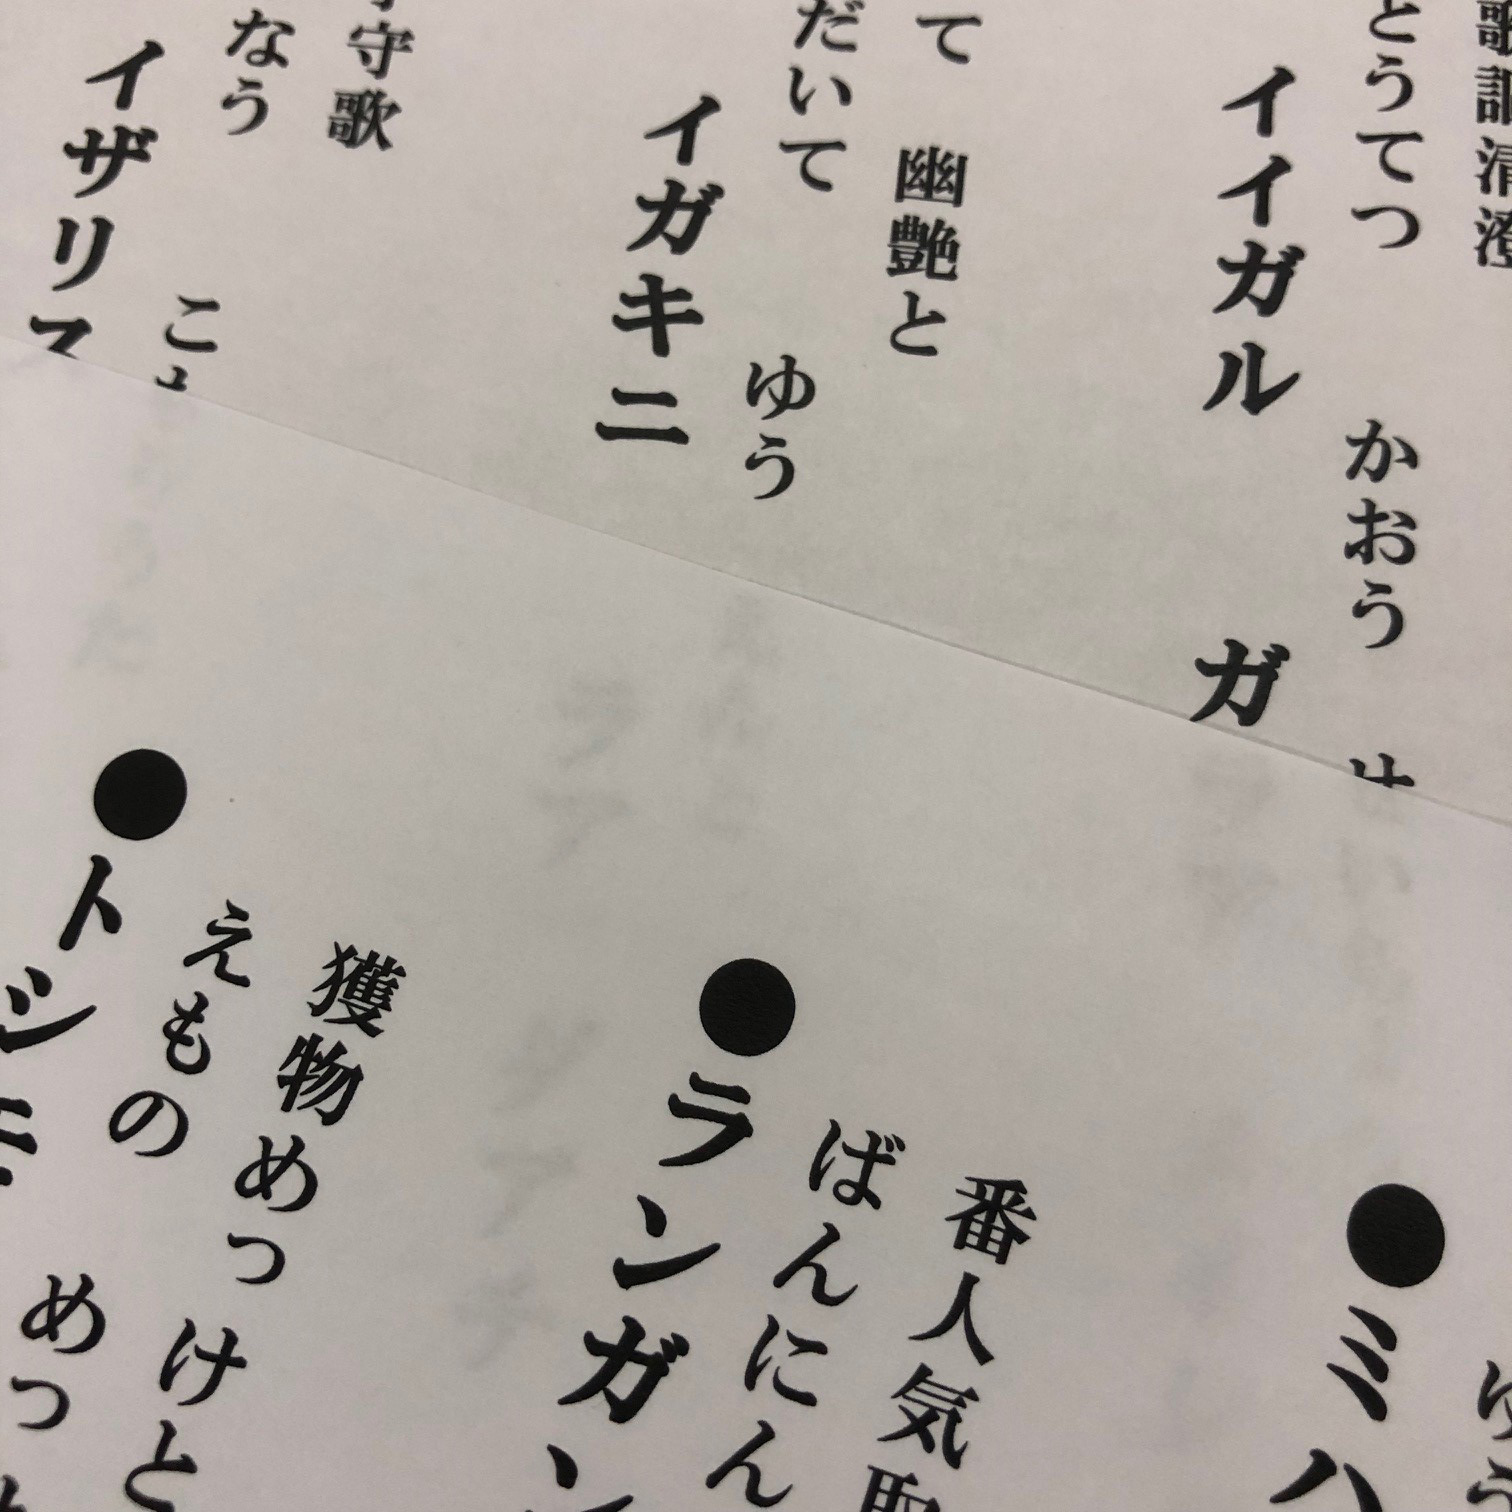 歌謳清澄
とうてつ　かおう
イイガル　ガ
て　幽艶と
だいて　ゆう
イガキニ
守歌
なう　こ
イザリス
ミハ
番人気取
ばんにん
ランガン
獲物めっけと
えもの　めっ
トシモ